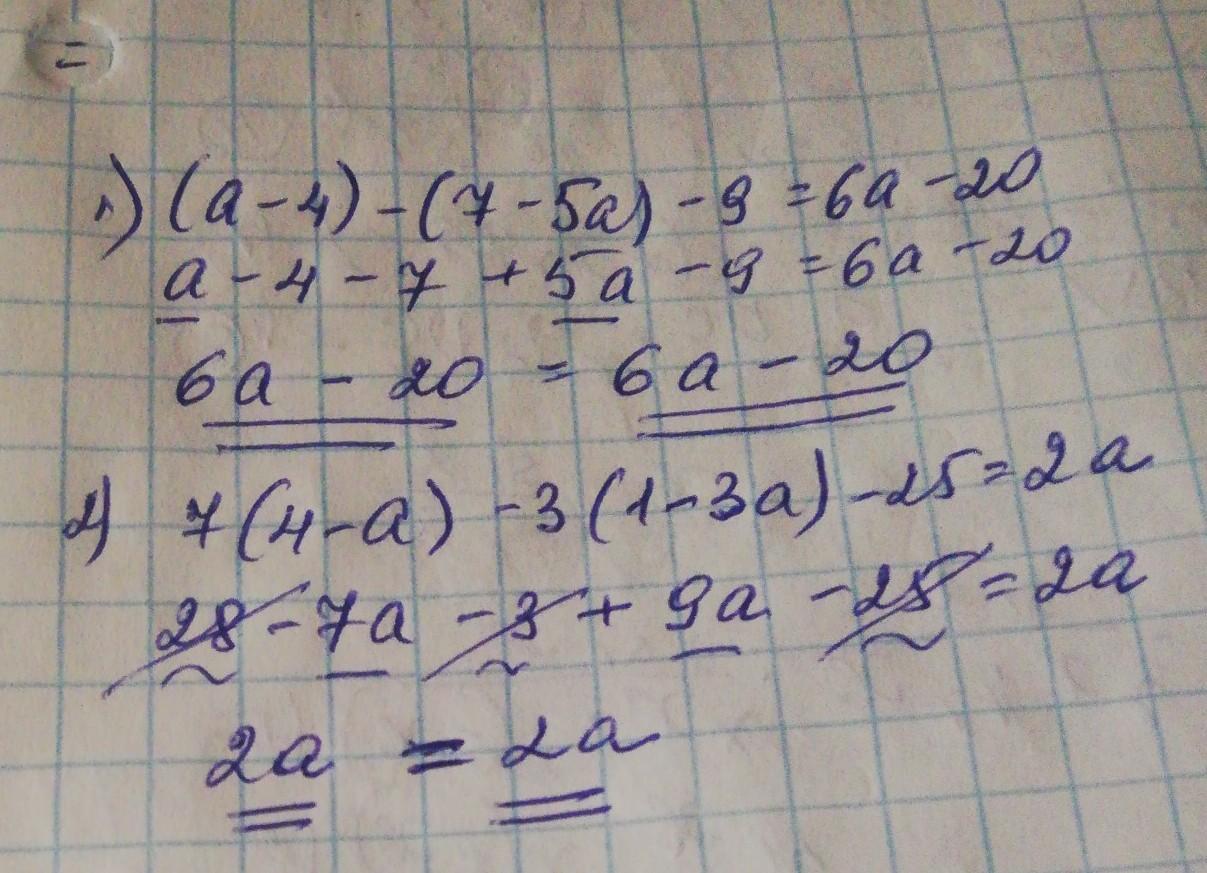 =
1) (a - 4) - (7 - 5a) - 9 = 6a - 20
a - 4 - 7 + 5a - 9 = 6a - 20
6a - 20 = 6a - 20
2) 7(4 - a) - 3(1 - 3a) - 25 = 2a
28 - 7a - 3 + 9a - 25 = 2a
2a = 2a